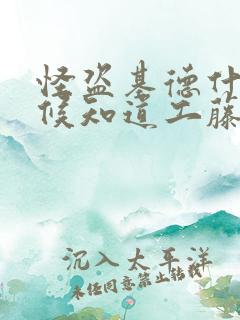 怪盗基德什
候知道工藤
沉入太平洋
未经同意禁止转载